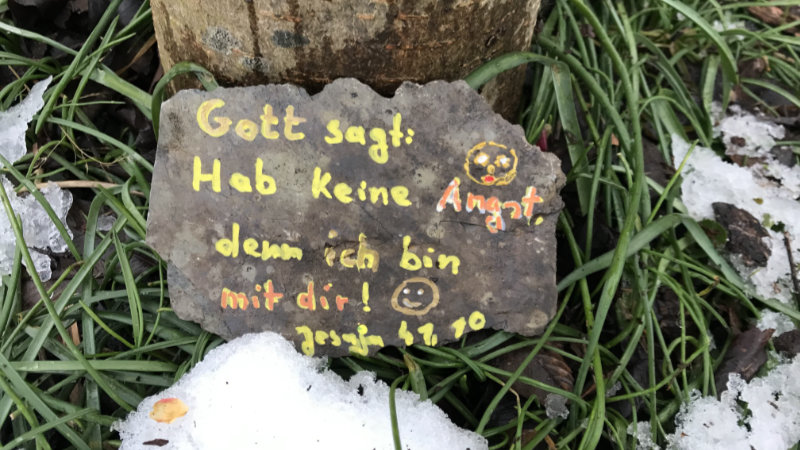 Gott sagt:
Hab keine Angst,
denn ich bin
mit dir!
Jesaja 41, 10